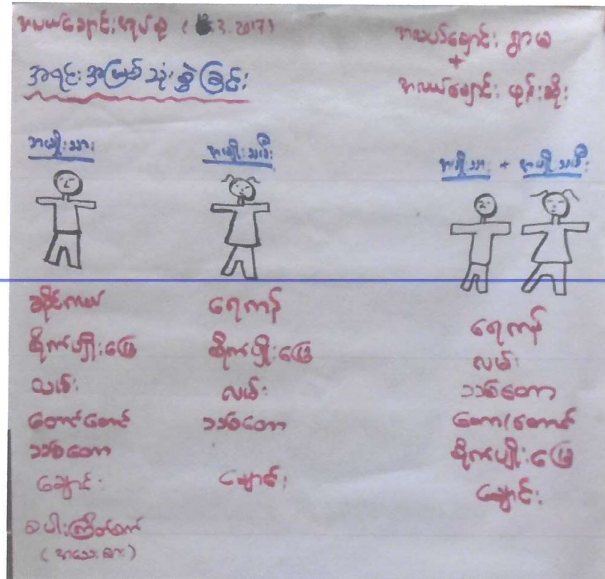 အလယ်ချောင်းအုပ်စု ( .3.2017)
အရင်းအမြစ်သုံးစွဲခြင်း
အလယ်ချောင်း ရွာမ
+
အလယ်ချောင်း ကုန်းဆိုး
အမျိုးသား
အမျိုးသမီး
အမျိုးသား + အမျိုးသမီး
စိုက်ပျိုးမြေ
လမ်း
တောင်
သစ်တော
ချောင်း
စပါးကြိတ်စက်
ရေကန်
စိုက်ပျိုးမြေ
လမ်း
သစ်တော
ချောင်း
ရေကန်
လမ်း
သစ်တော
တော/တောင်
စိုက်ပျိုးမြေ
ချောင်း